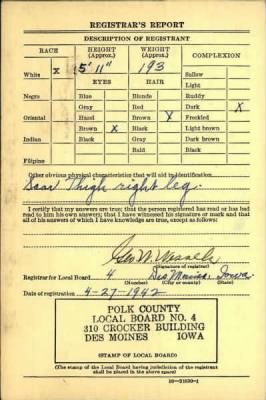 REGISTRAR'S REPORT
DESCRIPTION OF REGISTRANT
RACE HEIGHT (Approx.) WEIGHT (Approx.) COMPLEXION
White X 5' 11" 193 Sallow
EYES HAIR Light
Negro Blue Blonde Ruddy
Gray Red Dark X
Oriental Hazel Brown X Freckled
Brown X Black Light brown
Indian Black Gray Dark brown
Bald Black
Filipino
Other obvious physical characteristics that will aid in identification
Scar Thigh right leg.
I certify that my answers are true; that the person registered has read or has had
read to him his own answers; that I have witnessed his signature or mark and that
all of his answers of which I have knowledge are true, except as follows:
Geo W.
(Signature of registrar)
Registrar for Local Board 4 Des Moines, Iowa
(Number) (City or county) (State)
Date of registration 4-27-1942
POLK COUNTY
LOCAL BOARD NO. 4
310 CROCKER BUILDING
DES MOINES IOWA
(STAMP OF LOCAL BOARD)
(The stamp of the Local Board having jurisdiction of the registrant
shall be placed in the above space)